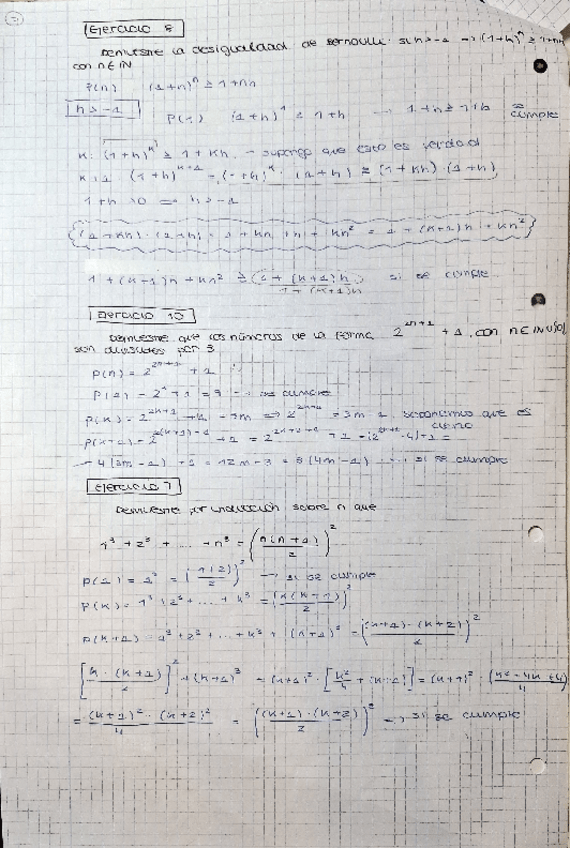 Ejercicio 8
Demuestre la desigualdad de Bernoulli: si h > -1 → (1+h)^n ≥ 1+nh
con n ∈ IN
P(n) (1+h)^n ≥ 1+nh
h > -1
P(1) (1+h)^1 ≥ 1+h → 1+h ≥ 1+h se cumple
K: (1+h)^K ≥ 1+Kh → supongo que esto es verdad
K+1: (1+h)^{K+1} = (1+h)^K · (1+h) ≥ (1+Kh) · (1+h)
1+h > 0 ⟹ h > -1
(1+Kh) · (1+h) = 1 + Kh + h + Kh² = 1 + (K+1)h + Kh²
1 + (K+1)h + Kh² ≥ 1 + (K+1)h si se cumple
1 + (K+1)h
Ejercicio 10
Demuestre que los números de la forma 2^{2n+1} + 1, con n ∈ IN U {0}
son divisibles por 3
P(n) = 2^{2n+1} + 1
se cumple
P(K) = 2^{2K+1} + 1 = 3m ⟹ 2^{2K+1} = 3m - 1, suponemos que es
cierto
→ 4(3m - 1) + 1 = 12m - 3 = 3(4m - 1) → si se cumple
Ejercicio 7
Demuestre por inducción sobre n que
1³ + 2³ + ... + n³ = (n(n+1)/2)²
P(1) = 1³ = (1(2)/2)² → si se cumple
P(K) = 1³ + 2³ + ... + K³ = (K(K+1)/2)²
P(K+1) = 1³ + 2³ + ... + K³ + (K+1)³ = ((K+1) · (K+2)/2)²
[K · (K+1)/2]² + (K+1)³ = (K+1)² · [K²/4 + (K+1)] = (K+1)² · (K² + 4K + 4)/4
= (K+1)² · (K+2)²/4 = ((K+1) · (K+2)/2)² → si se cumple